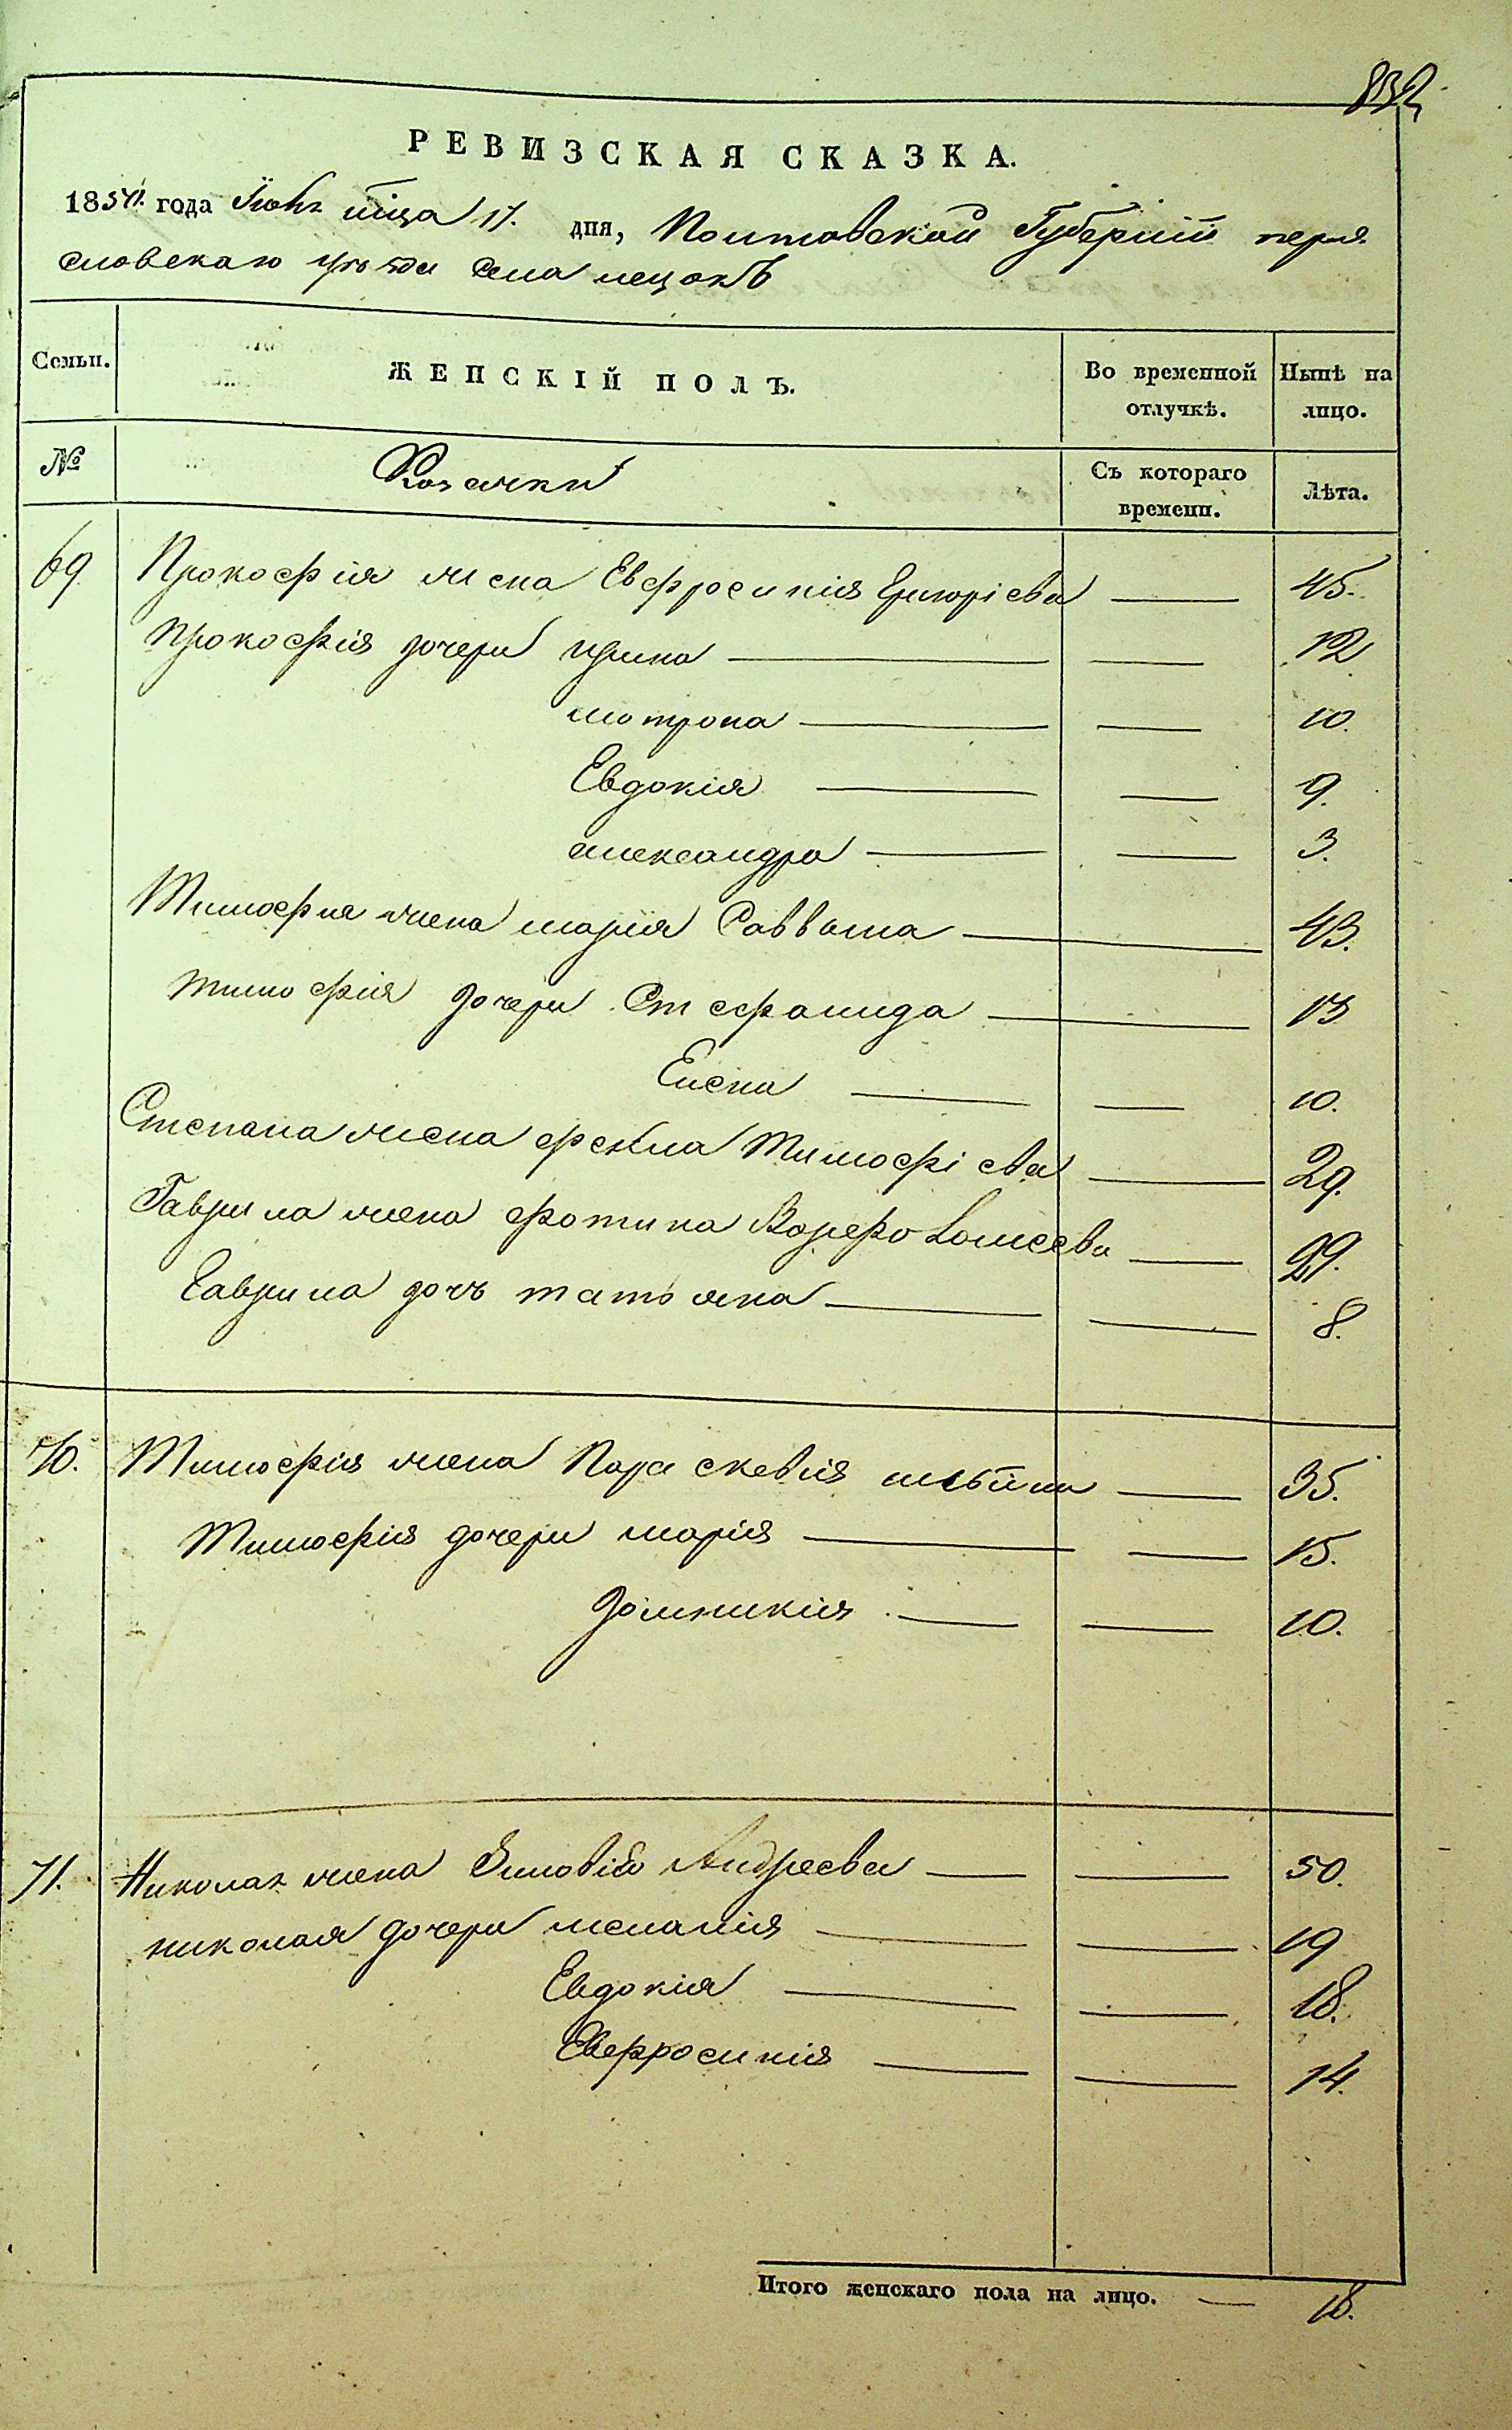 832
РЕВИЗСКАЯ СКАЗКА.
18 года мѣца 17. дня, Полтавской Губерніи перея
словскаго уѣзда села лецокъ
Семьи. ЖЕНСКІЙ ПОЛЪ. Во временной отлучкѣ. Нынѣ на лицо.
№ Козачки Съ котораго времени. Лѣта.
69 Прокофія жена Евфросинія Григоріева 45.
Прокофія дочери Ирина 12
мотрона 10.
Евдокія 9.
александра 3.
Тимофия жена марія Саввына 43.
тимофія дочери Стефанида 13
Елена 10.
Степана жена фекла Тимофіева 29.
Гаврила жена фотина Варфоломеева 29.
Гаврила дочь татьяна 8.
70. Тимофія жена Параскевія ильина 35.
Тимофія дочери марія 15.
домникія 10.
71. Николая жена Зиновія Андреева 50.
николая дочери меланія 19
Евдокія 18.
Евфросинія 14.
Итого женскаго пола на лицо. 18.